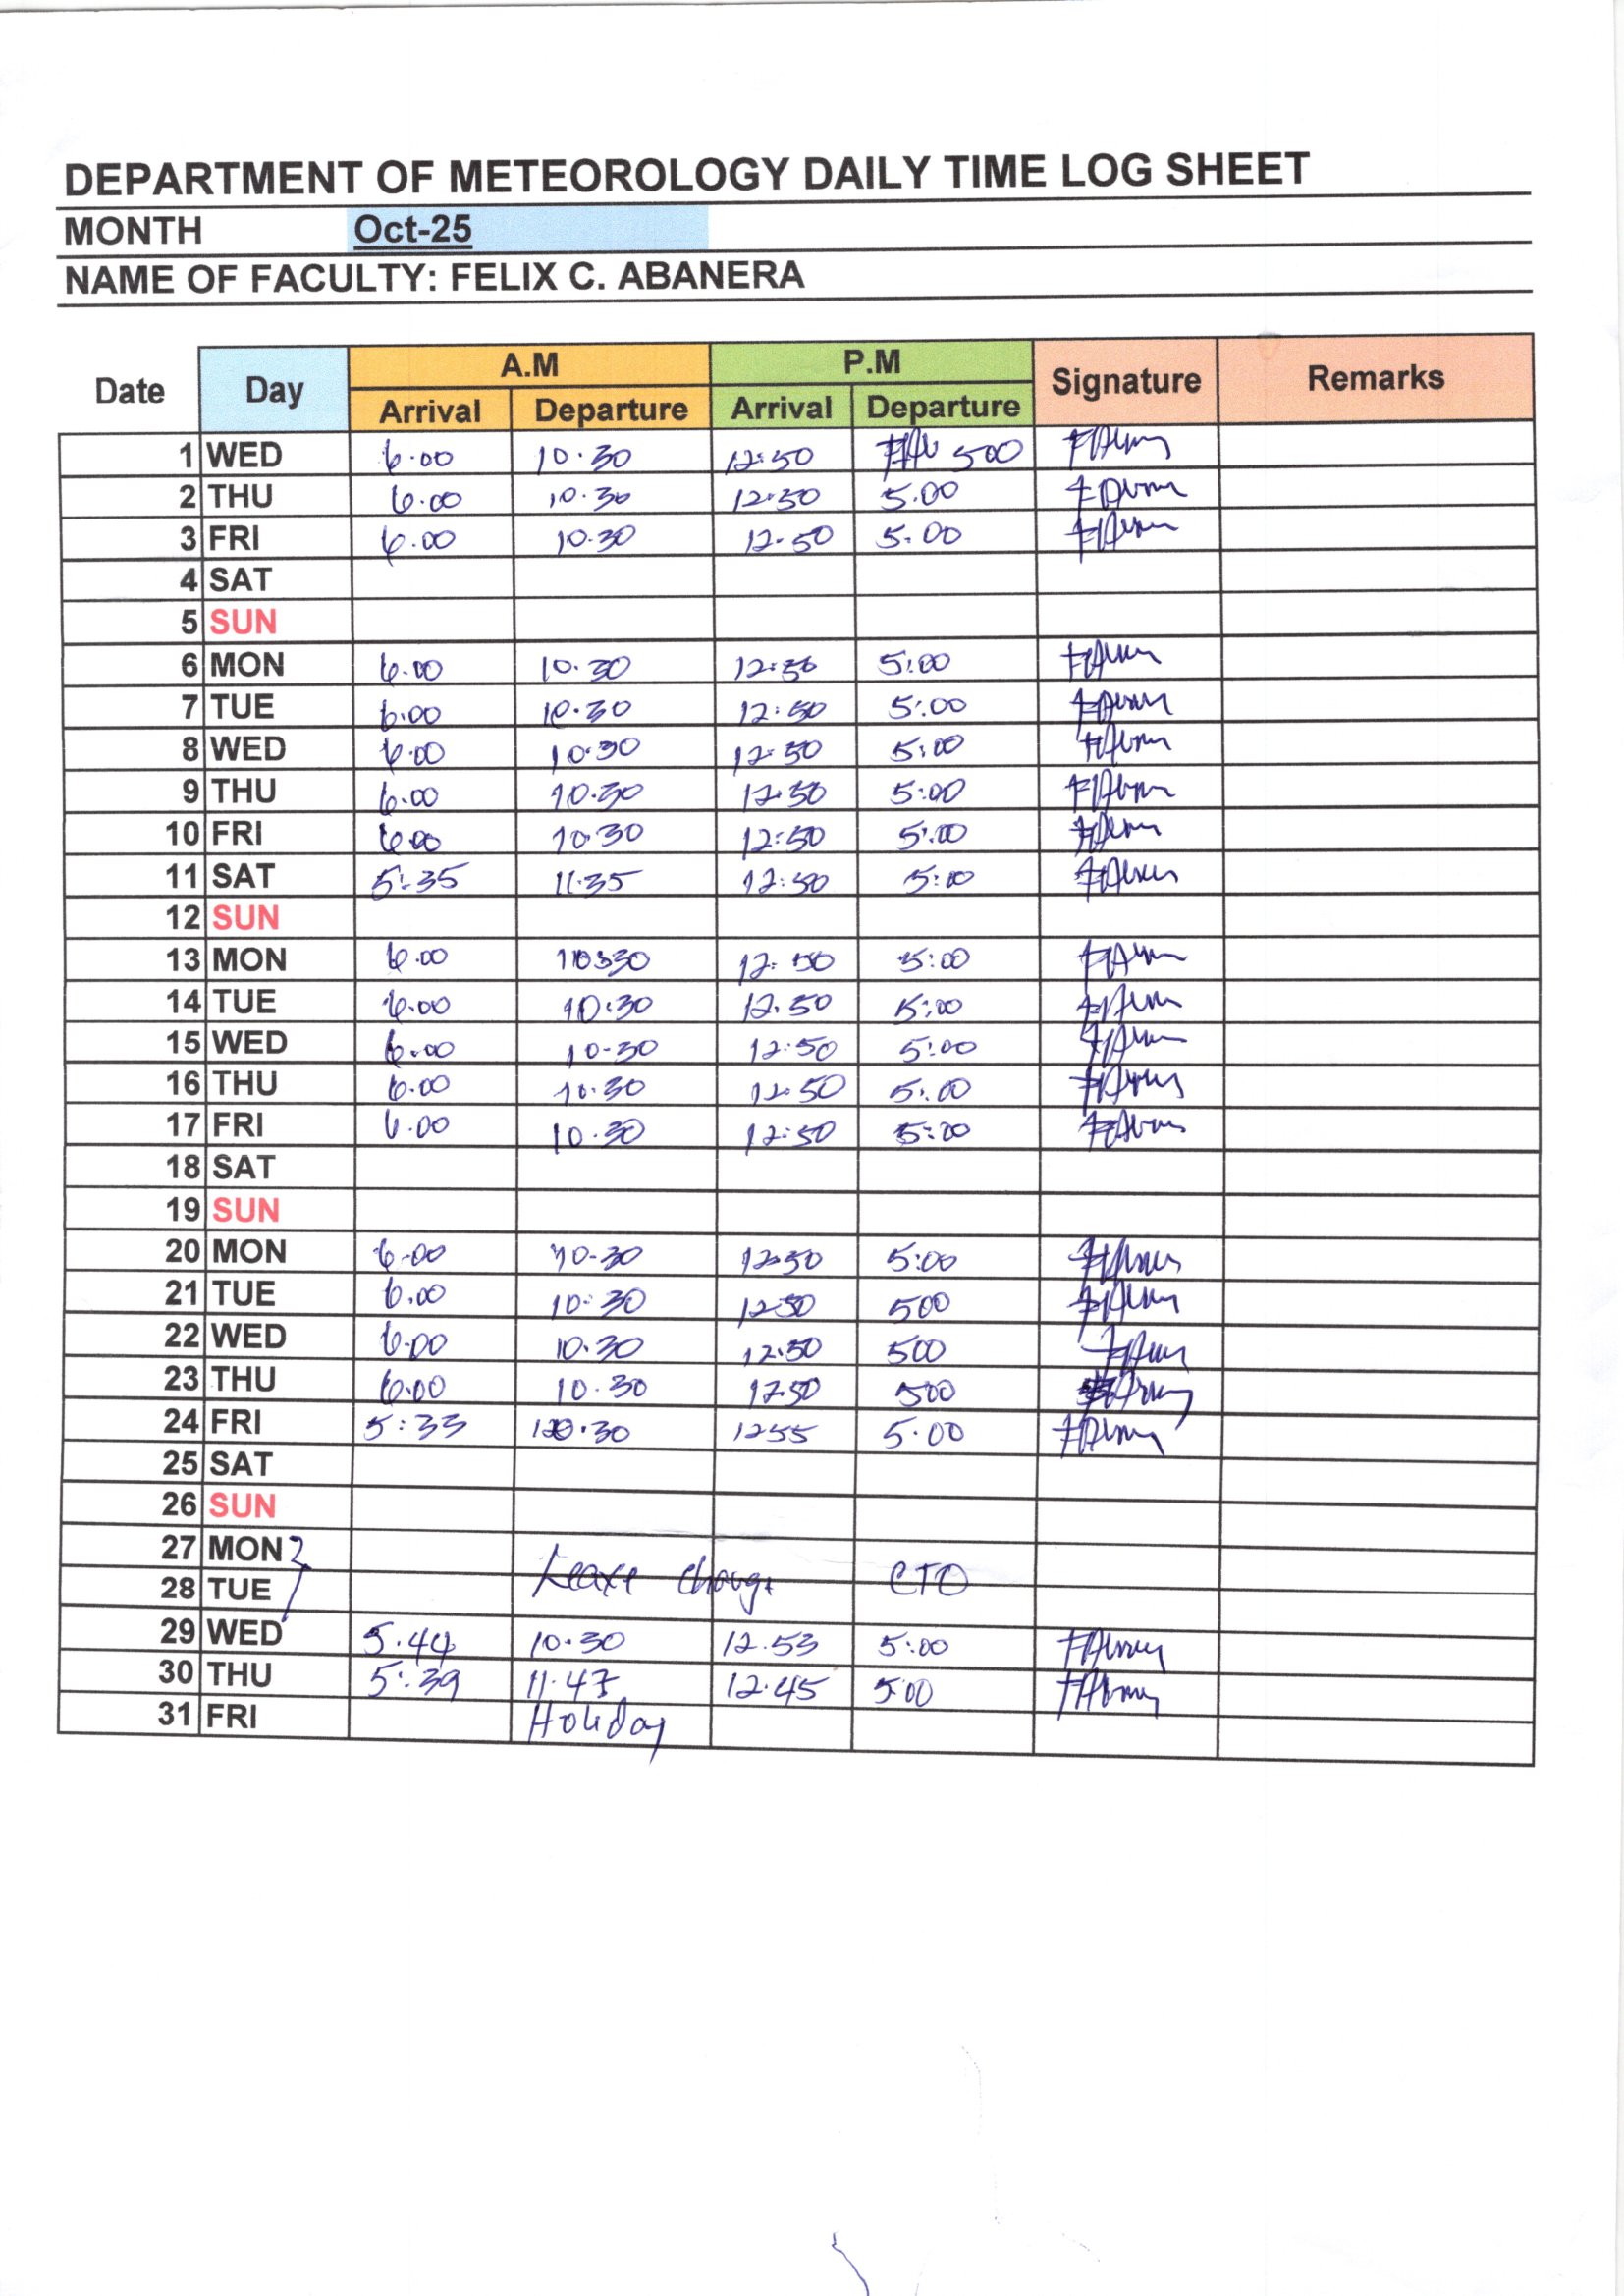 DEPARTMENT OF METEOROLOGY DAILY TIME LOG SHEET
MONTH Oct-25
NAME OF FACULTY: FELIX C. ABANERA
Date Day A.M P.M Signature Remarks
Arrival Departure Arrival Departure
1 WED 6.00 10.30 12:50 500
2 THU 6.00 10.30 12:50 5.00
3 FRI 6.00 10.30 12.50 5.00
4 SAT
5 SUN
6 MON 6.00 10.30 12:50 5:00
7 TUE 6.00 10.30 12:50 5:00
8 WED 6.00 10.30 12:50 5:00
9 THU 6.00 10.30 12.50 5:00
10 FRI 6.00 10.30 12:50 5:00
11 SAT 5:35 11.35 12:50 5:00
12 SUN
13 MON 6.00 10:30 12:50 5:00
14 TUE 6.00 10:30 12.50 5:00
15 WED 6.00 10-30 12:50 5:00
16 THU 6.00 10.30 12.50 5:00
17 FRI 6.00 10.30 12:50 5:00
18 SAT
19 SUN
20 MON 6-00 10-30 12:50 5:00
21 TUE 6.00 10:30 1250 500
22 WED 6.00 10.30 12.50 500
23 THU 6.00 10.30 1250 500
24 FRI 5:33 10.30 1255 5.00
25 SAT
26 SUN
27 MON
Leave CTO
28 TUE
29 WED 5.44 10.30 12.53 5:00
30 THU 5:39 11.47 12.45 500
31 FRI Holiday